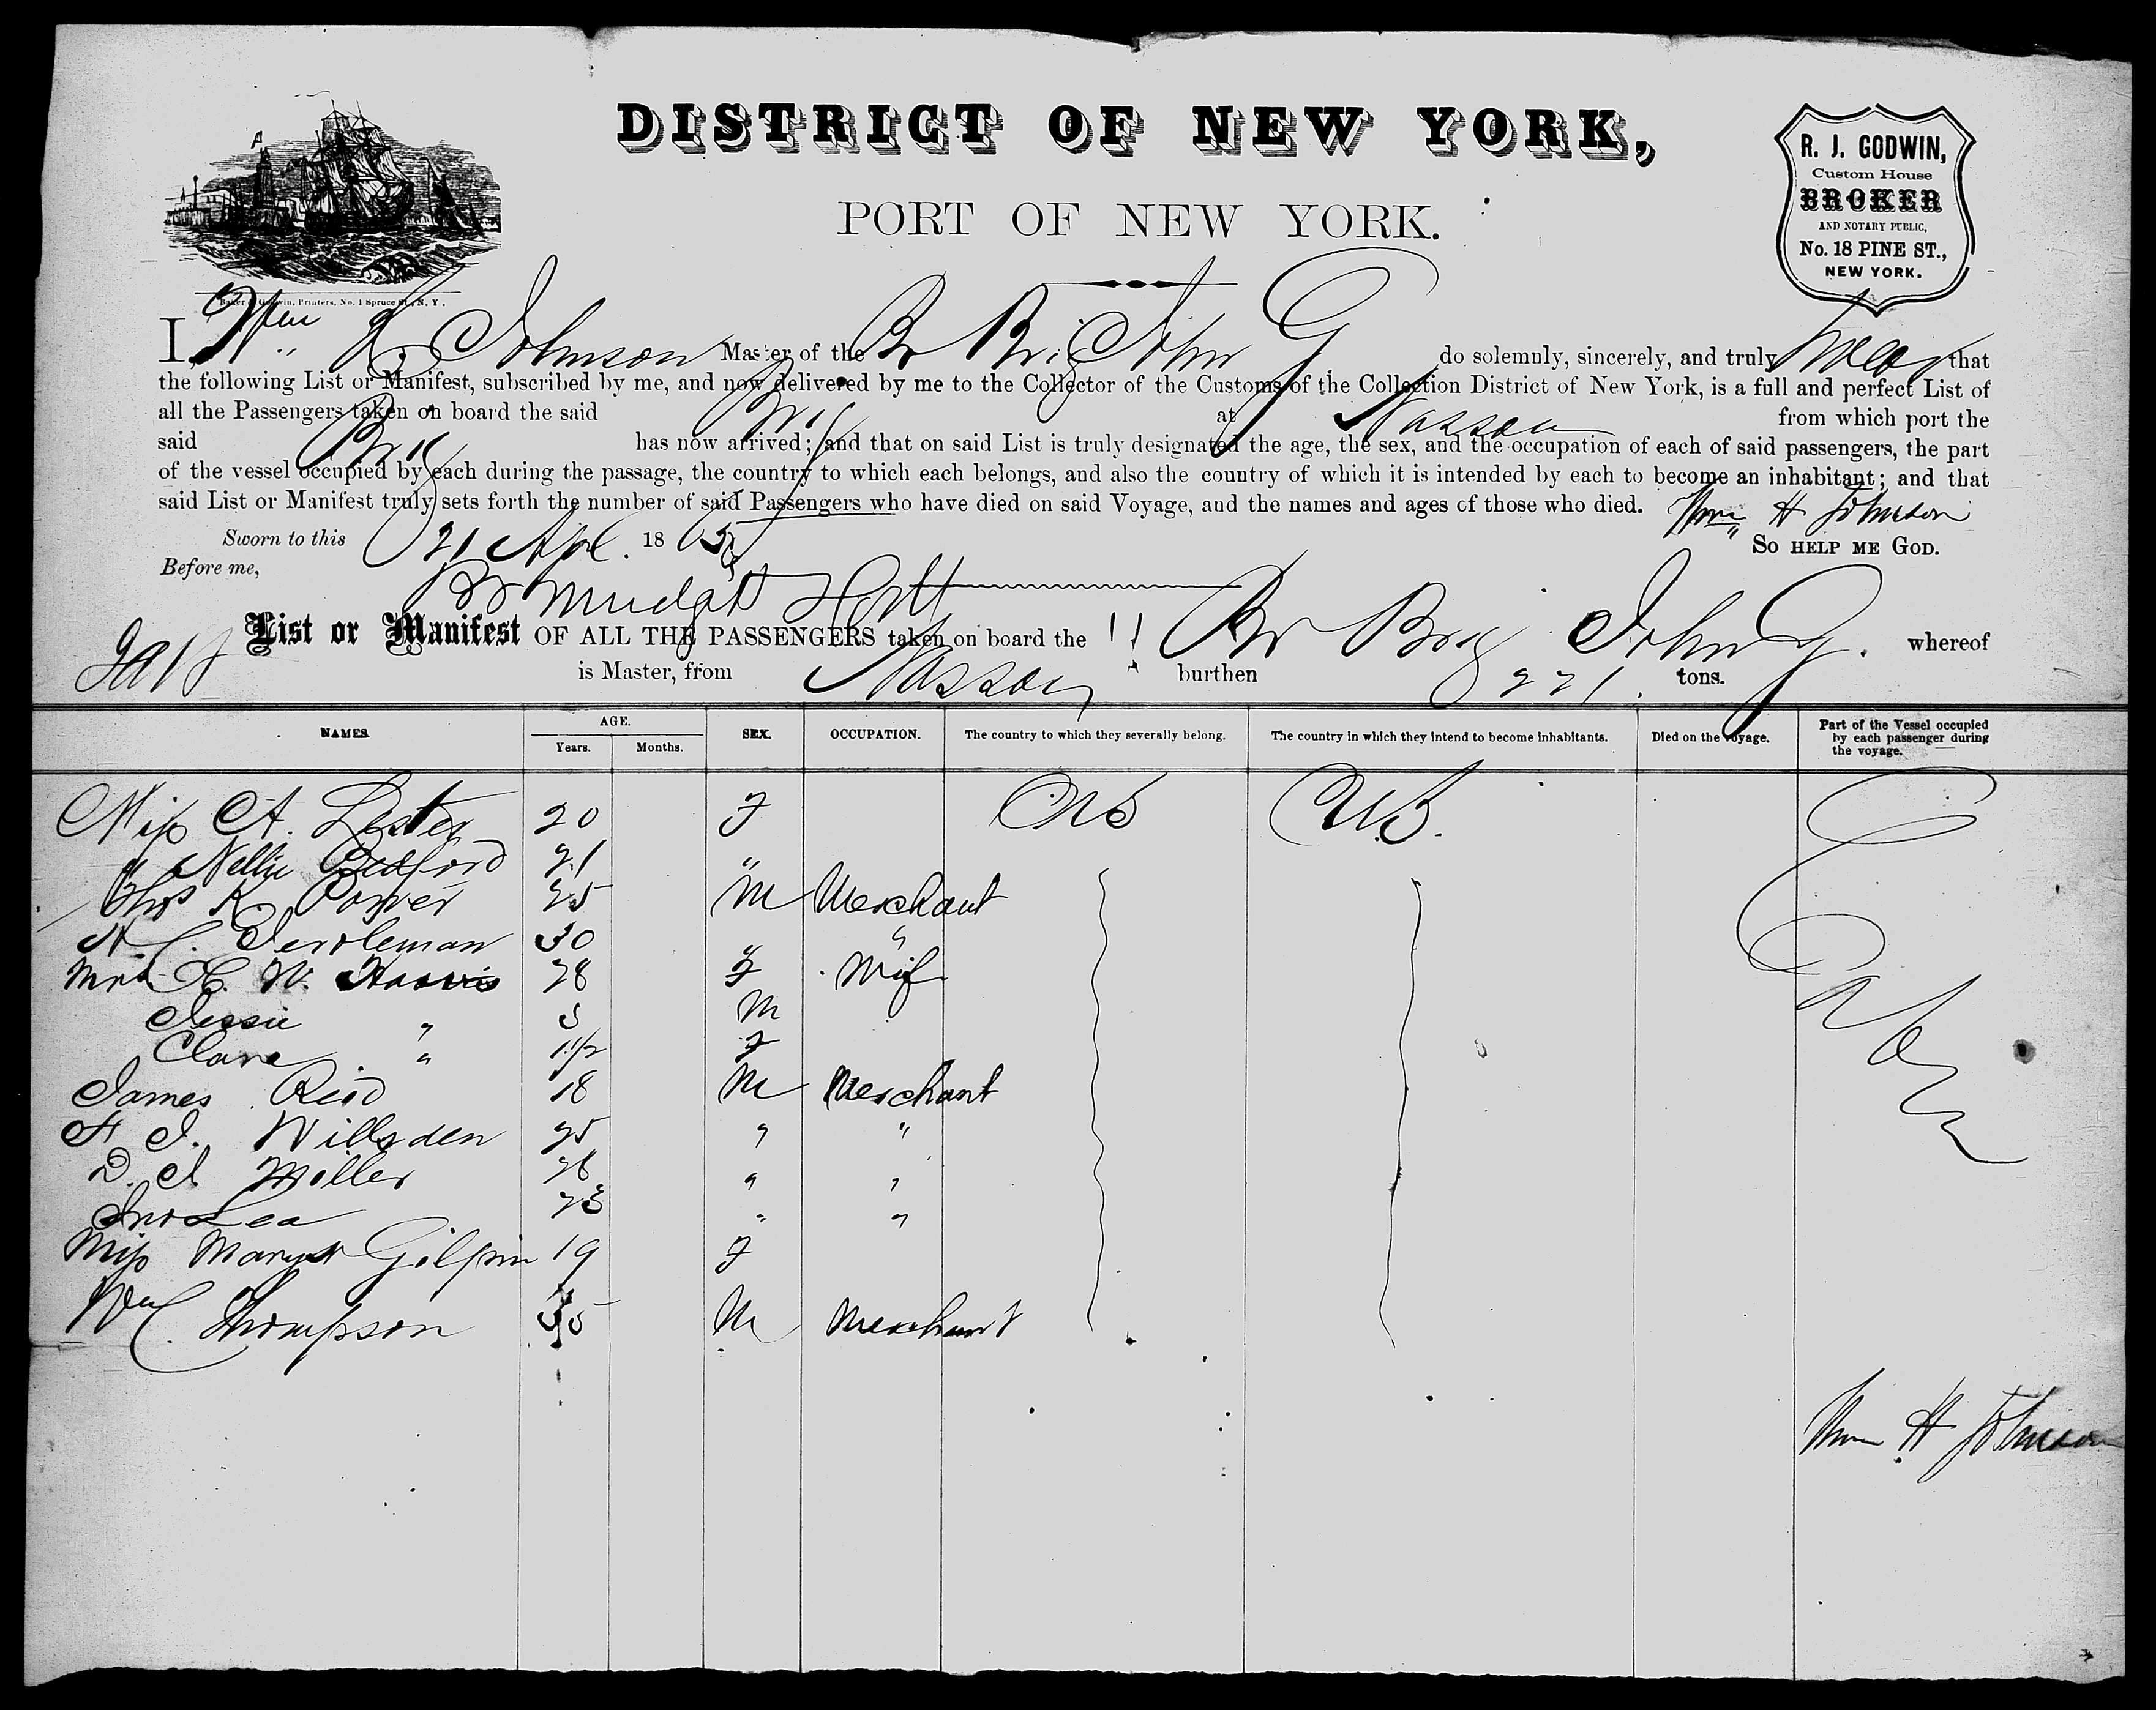 DISTRICT OF NEW YORK,
PORT OF NEW YORK.
R. J. GODWIN,
Custom House
BROKER
AND NOTARY PUBLIC,
No. 18 PINE ST.,
NEW YORK.
Baker & Godwin, Printers, No. 1 Spruce St., N. Y.
I, Wm H Johnson Master of the Br Brig John G do solemnly, sincerely, and truly swear that
the following List or Manifest, subscribed by me, and now delivered by me to the Collector of the Customs of the Collection District of New York, is a full and perfect List of
all the Passengers taken on board the said Brig at Nassau from which port the
said Brig has now arrived; and that on said List is truly designated the age, the sex, and the occupation of each of said passengers, the part
of the vessel occupied by each during the passage, the country to which each belongs, and also the country of which it is intended by each to become an inhabitant; and that
said List or Manifest truly sets forth the number of said Passengers who have died on said Voyage, and the names and ages of those who died. Wm H Johnson
Sworn to this 21 Apl. 1865 SO HELP ME GOD.
Before me,
List or Manifest OF ALL THE PASSENGERS taken on board the Br Brig John G. whereof
is Master, from Nassau burthen 221. tons.
NAMES. AGE. Years. Months. SEX. OCCUPATION. The country to which they severally belong. The country in which they intend to become inhabitants. Died on the voyage. Part of the Vessel occupied by each passenger during the voyage.
Miss A. Lester 20 F US U.S. Cabin
" Nellie Bedford 21 "
R Power 25 M Merchant
30 " "
Mrs H. W. Harris 28 F Wife
Jessie " 3 M
Clara " 1 1/2 F
James Reid 18 M Merchant
F J. Willsden 25 " "
D. J Miller 28 " "
Jno Lea 23 " "
Miss Mary Gilpin 19 F
Wm C. Thompson 35 M Merchant
Wm H Johnson